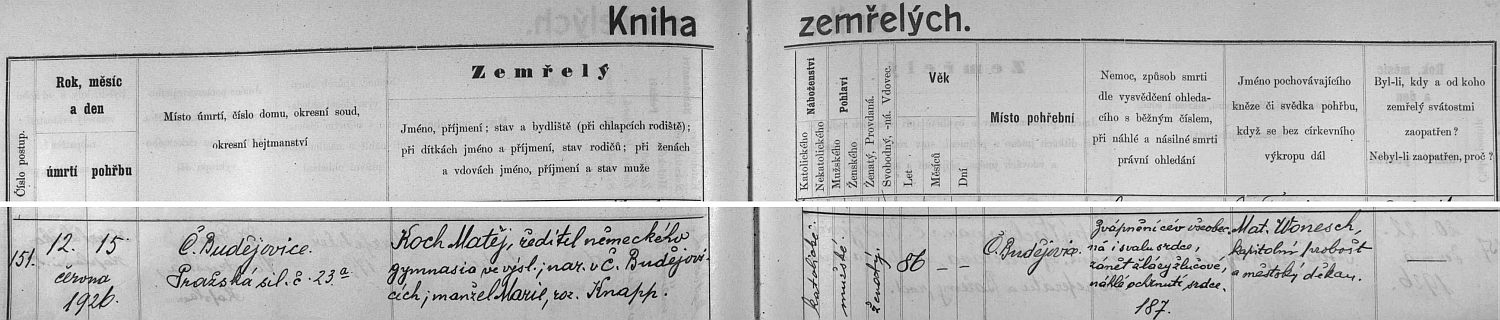 Kniha zemřelých.
Číslo postup.
Rok, měsíc
a den
úmrtí pohřbu
Místo úmrtí, číslo domu, okresní soud,
okresní hejtmanství
Zemřelý
Jméno, příjmení; stav a bydliště (při chlapcích rodiště);
při dítkách jméno a příjmení, stav rodičů; při ženách
a vdovách jméno, příjmení a stav muže
Náboženství
Katolického
Nekatolického
Pohlaví
Mužského
Ženského
Ženatý, Provdaná.
Svobodný, -ná. Vdovec.
Věk
Let
Měsíců
Dní
Místo pohřební
Nemoc, způsob smrti
dle vysvědčení ohleda-
cího s běžným číslem,
při náhlé a násilné smrti
právní ohledání
Jméno pochovávajícího
kněze či svědka pohřbu,
když se bez církevního
výkropu dál
Byl-li, kdy a od koho
zemřelý svátostmi
zaopatřen?
Nebyl-li zaopatřen, proč?
151.
12. 15.
června
1926.
Č. Budějovice.
Pražská sil. č. 23a
Koch Matěj, ředitel německého
gymnasia ve výsl.; nar. v Č. Budějovi-
cích; manžel Marie, roz. Knapp.
katolické.
mužské.
ženatý.
86 – –
Č. Budějovice.
Zvápnění cév všeobec-
ná i svalu srdce,
zánět žlučové,
náhlé ochrnutí srdce.
187.
Mat. Wonesch,
kapitolní probošt
a městský děkan.
—